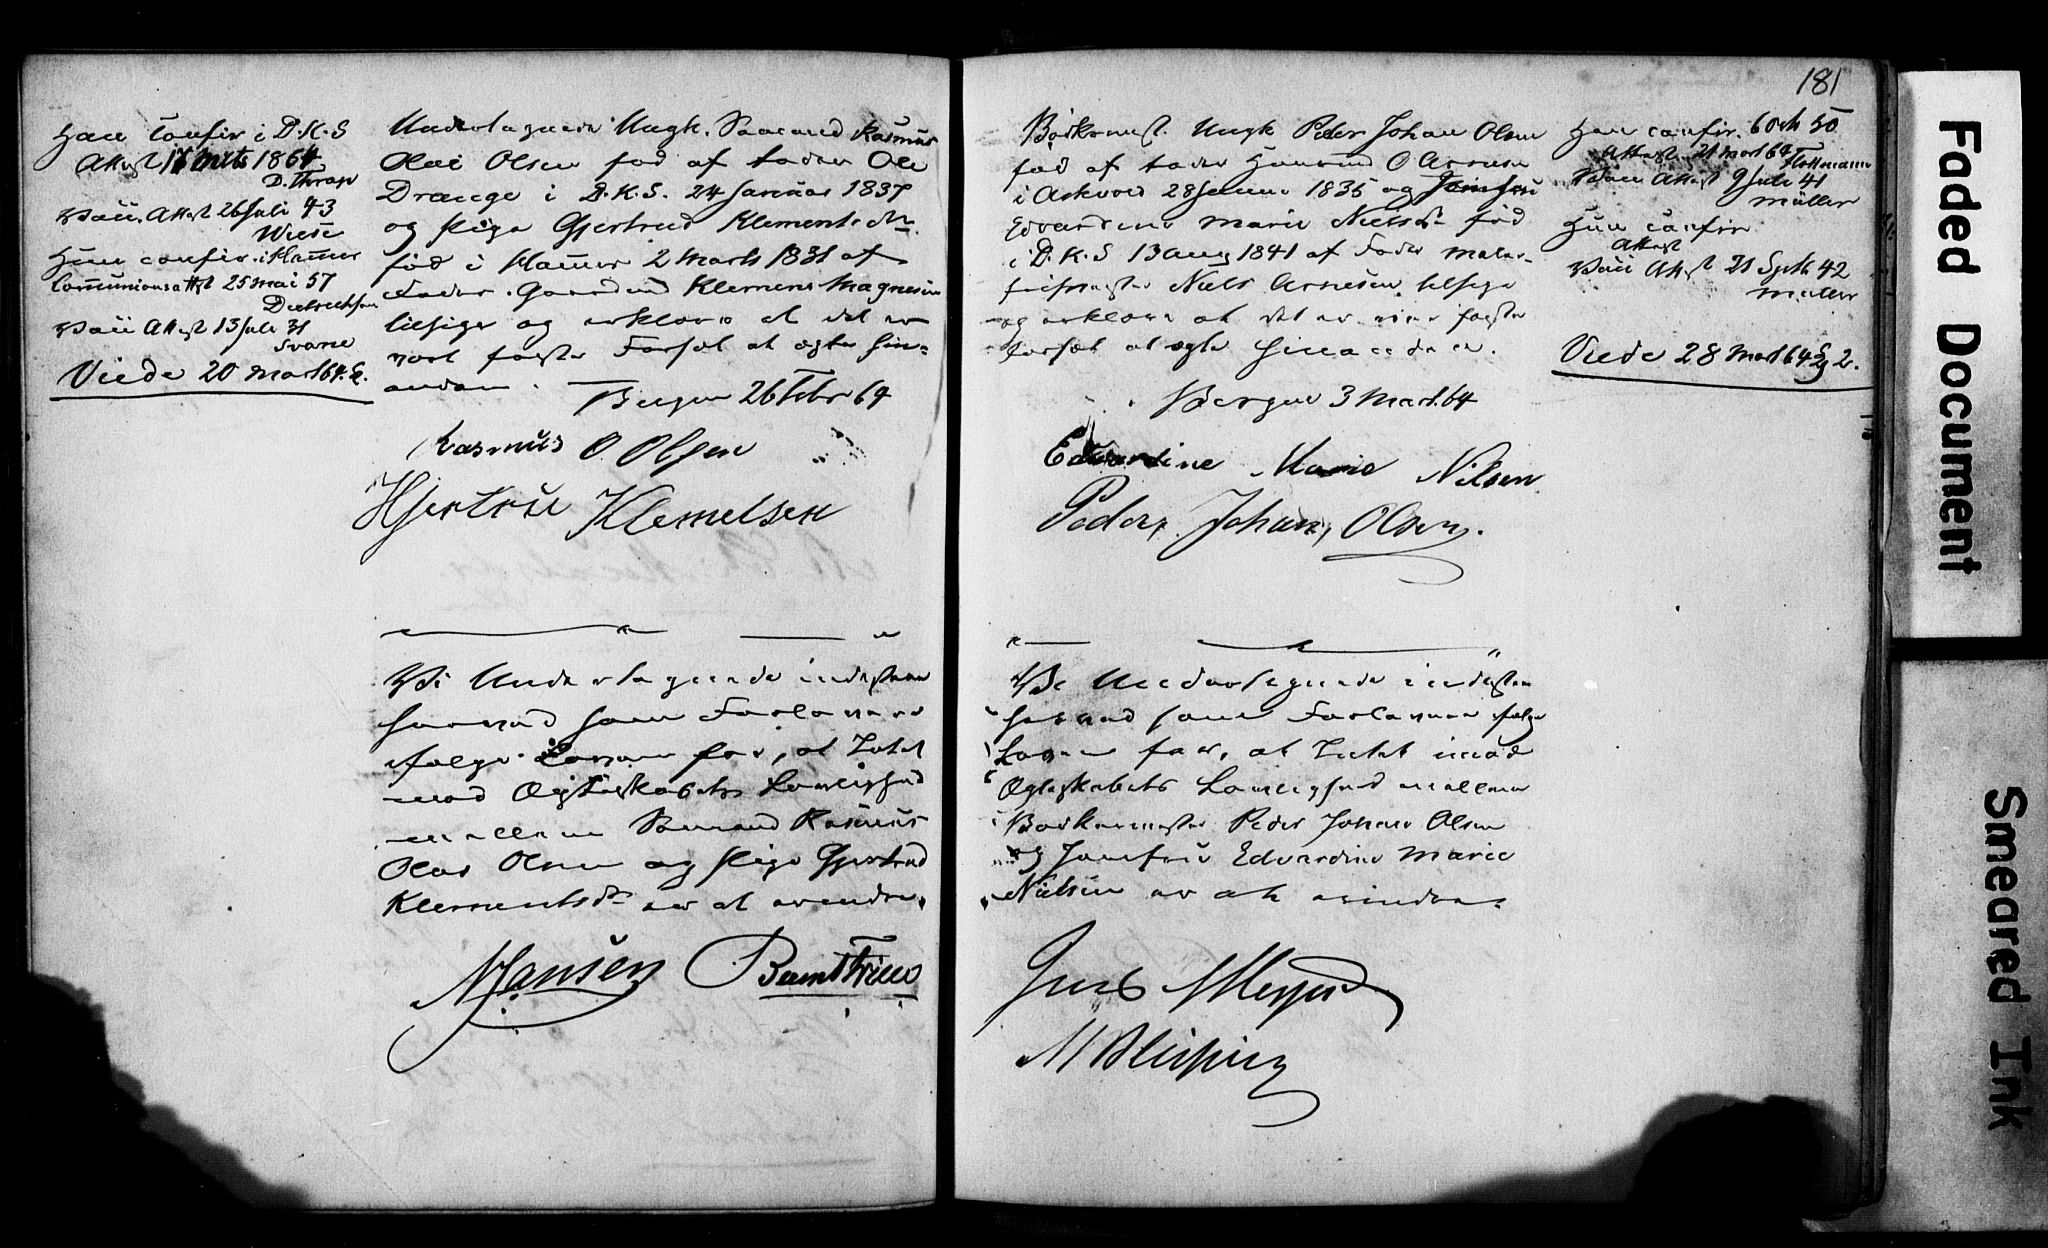 Han confir i D.K.S
Attest 17 Marts 1864
D. Thrap
Vacc. Attest 26 Juli 43
Wiese
Hun confir. i Hammer
Communionsattst 25 Mai 57
Vacc Attest 13 Juli 31
Viede 20 Mart 64.
Undertegnede Ungk. Sømand Rasmus
Olai Olsen fød af Fader Ole
Drange i D.K.S. 24 Januar 1837
og Pige Gjertrud Klementsdtr
fød i Hammer 2 Marts 1831 af
Fader Gaardmd Klemens Magnesen
tilsiger og erklærer at det er
vort faste Forsæt at ægte hin-
anden.
Bergen 26 Febr 64
Rasmus O Olsen
Hjertrue Klemetsen
Vi Undertegnede indestaar
herved som Forlovere
følge Loven for, at Intet
mod Ægteskabets Lovlighed
mellem Sømand Rasmus
Olai Olsen og Pige Gjertrud
Klementsdtr er at erindre.
N Jansen
181
Bødkermst. Ungk Peder Johan Olsen
fød af Fader Huusmd O Arnesen
i Askvold 28 1835 og Jomfru
Edvardine Marie Nielsdr fød
i D.K.S 13 Aug 1841 af Fader Maler-
Niels Arnesen tilsige
og erklære at det er vor faste
Forsæt at ægte hinanden.
Bergen 3 Mart. 64
Edvardine Marie Nilsen
Peder Johan Olsen.
Vi Undertegnede indestaa
herved som Forlovere følge
Loven for, at Intet imod
Ægteskabets Lovlighed mellem
Bødkermester Peder Johan Olsen
og Jomfru Edvardine Marie
Nielsen er at erindre
Han confir. 6 Octb 50
Attest 21 Mart 64
Vacc Attst 9 Juli 41
Müller
Hun confir
Attest
Vacc Attst 21 Septb 42
Müller
Viede 28 Mart 64
Faded Document
Smeared Ink